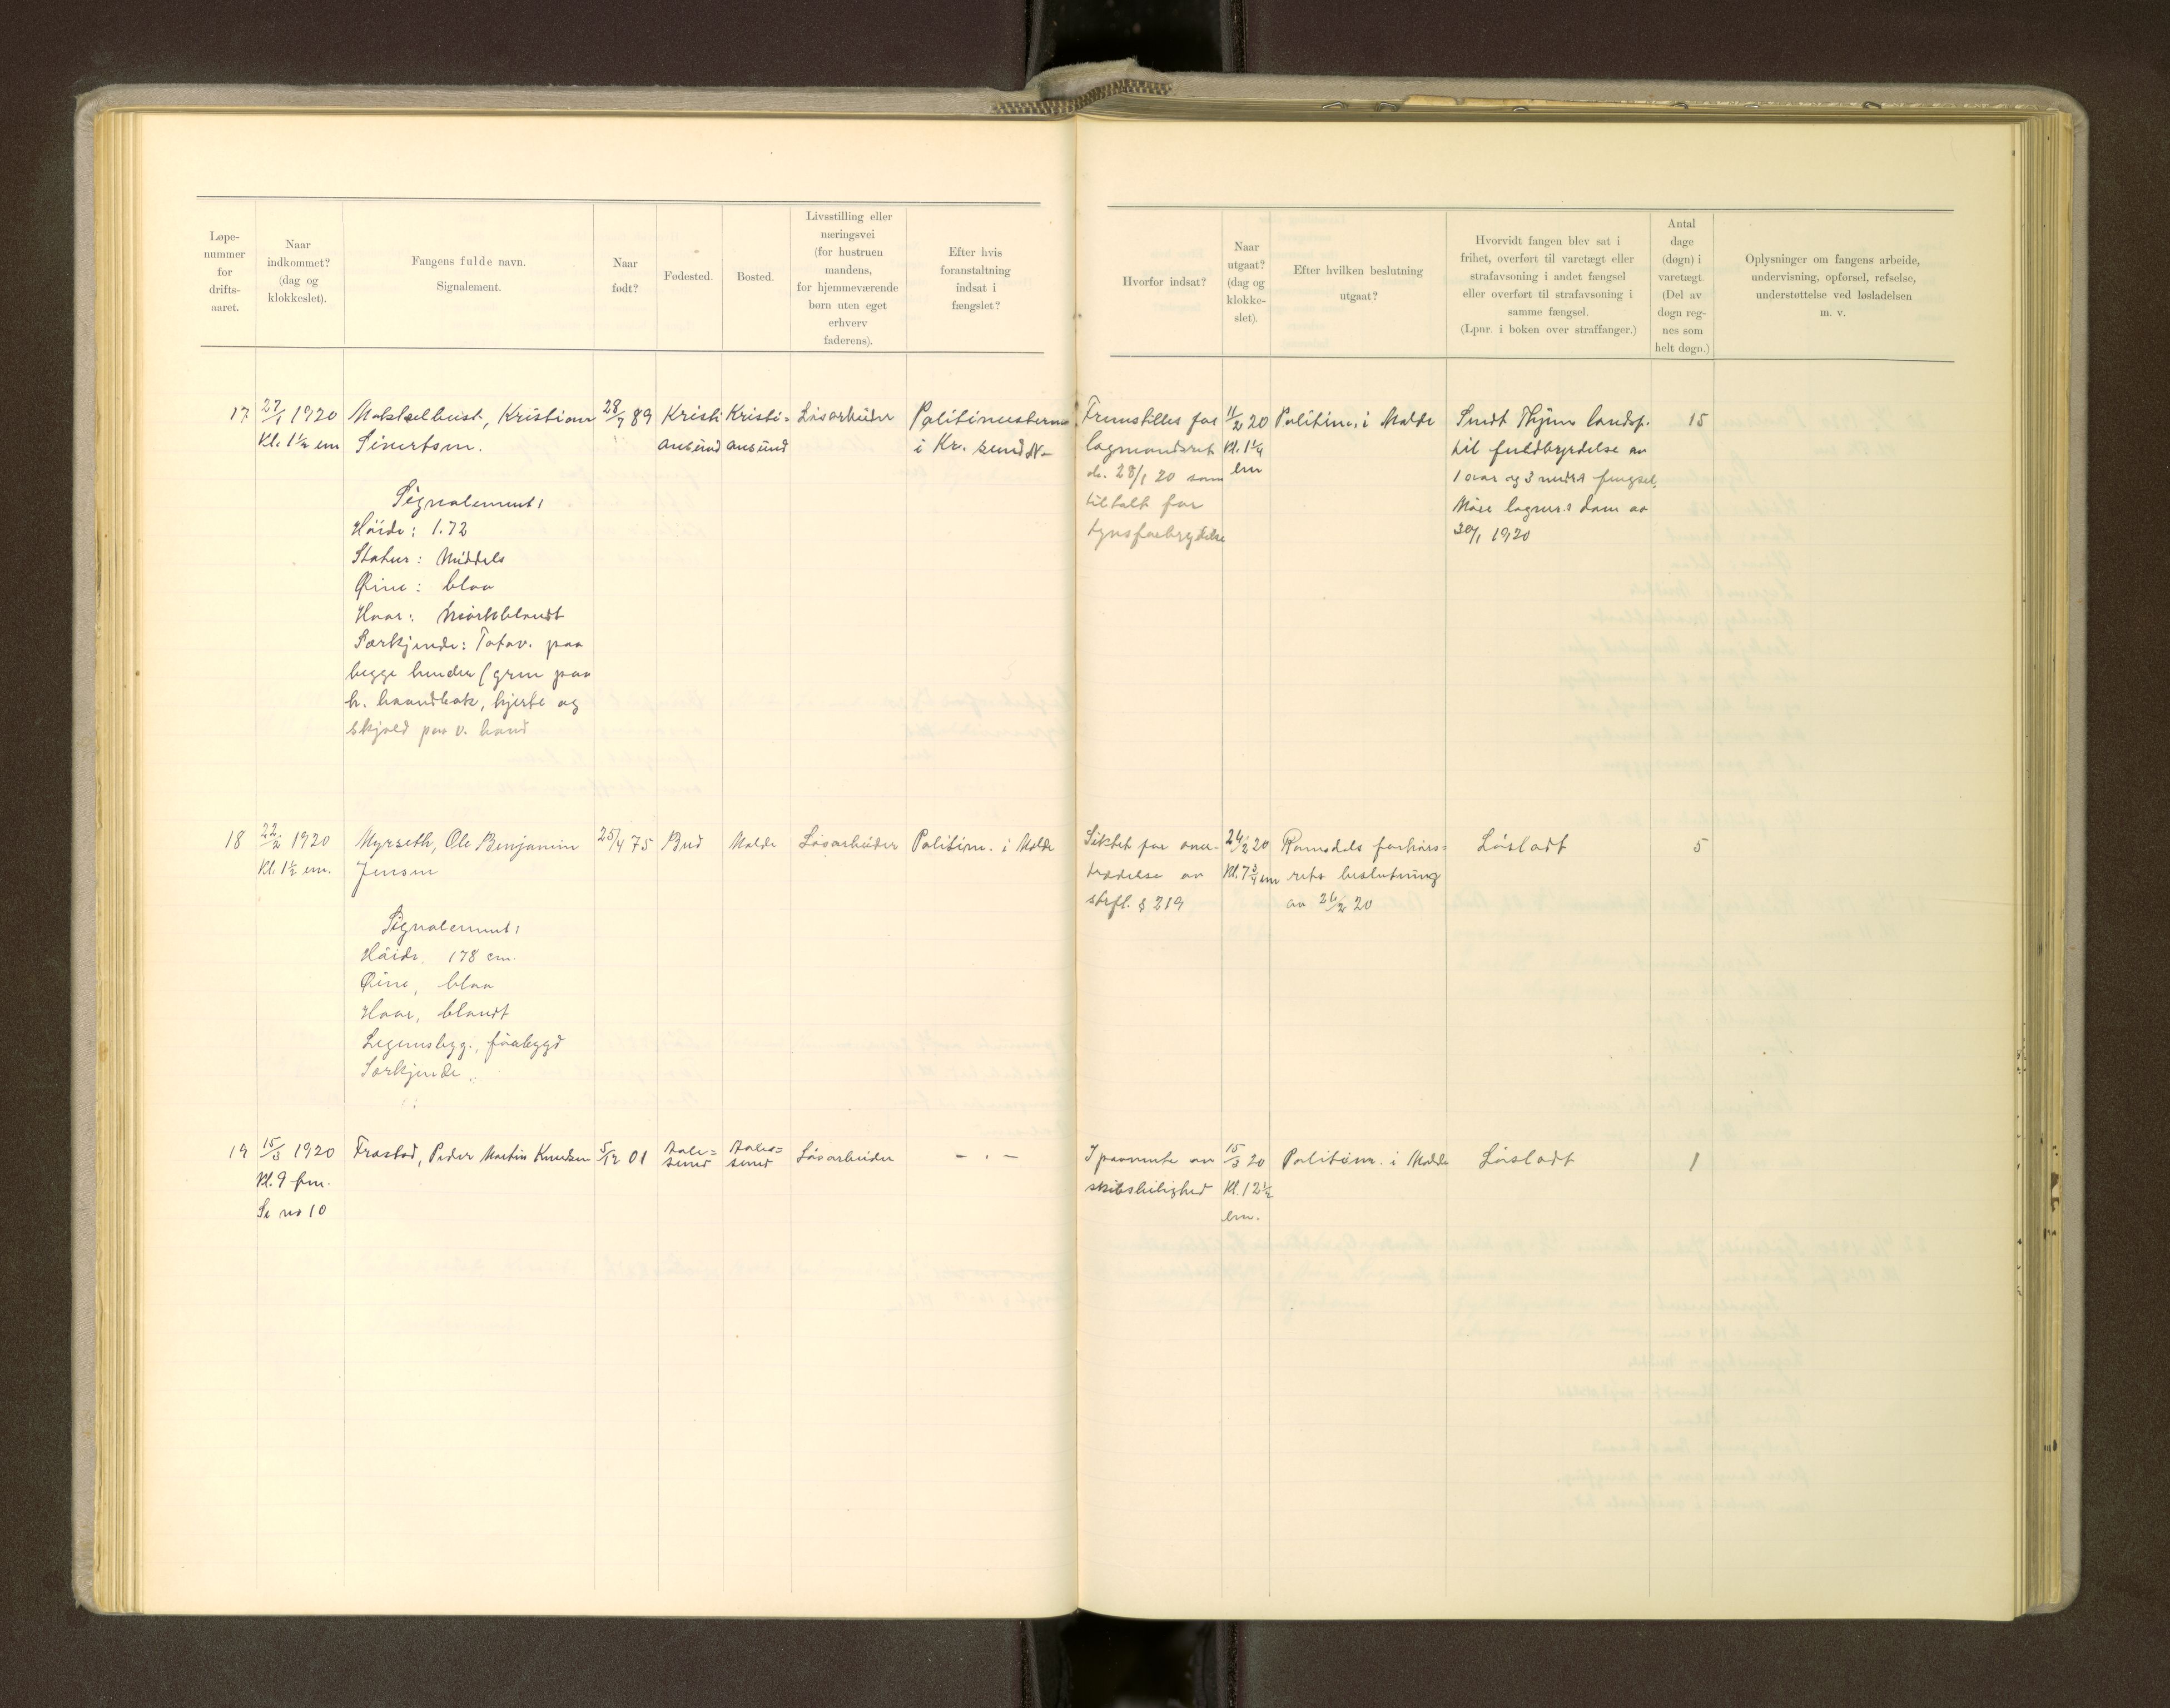 Løpe-
nummer
for
drifts-
aaret.
Naar
indkommet?
(dag og
klokkeslet).
Fangens fulde navn.
Signalement.
Naar
født?
Fødested.
Bosted.
Livsstilling eller
næringsvei
(for hustruen
mandens,
for hjemmeværende
børn uten eget
erhverv
faderens).
Efter hvis
foranstaltning
indsat i
fængslet?
Hvorfor indsat?
Naar
utgaat?
(dag og
klokke-
slet).
Efter hvilken beslutning
utgaat?
Hvorvidt fangen blev sat i
frihet, overført til varetægt eller
strafavsoning i andet fængsel
eller overført til strafavsoning i
samme fængsel.
(Lpnr. i boken over straffanger.)
Antal
dage
(døgn) i
varetægt.
(Del av
døgn reg-
nes som
helt døgn.)
Oplysninger om fangens arbeide,
undervisning, opførsel, refselse,
understøttelse ved løsladelsen
m. v.
17
27/1 1920
Kl. 1½ em
Kristian
Sivertsen.
Signalement:
Høide: 1.72
Statur: Middels
Øine: blaa
Haar: Mørkblondt
Særkjende: Tatov. paa
begge hender (gren paa
h. haandbak, hjerte og
skjold paa v. haand
28/7 89
Kristi
ansund
Kristi=
ansund
Løsarbeider
Politimesteren
i Kr. sund N.
Fremstilles for
lagmandsret
d. 28/1 20 som
tiltalt for
tyvsforbrydelse
11/2 20
Kl. 1¼
em
Politim. i Molde
Sendt Thjems landsf.
til fuldbyrdelse av
1 aar og 3 mdrs fengsel,
Møre lagmrs dom av
30/1 1920
15
18
22/2 1920
Kl. 1½ em.
Myrseth, Ole Benjamin
Jensen
Signalement:
Høide, 178 cm.
Øine, blaa
Haar, blondt
Legemsbygn., förbygd
Særkjende
25/4 75
Bud
Molde
Løsarbeider
Politim. i Molde
Siktet for over-
trædelse av
strfl. § 219
26/2 20
Kl. 7¾ em
Romsdals forhørs=
rets beslutning
av 26/2 20
Løsladt
5
19
15/3 1920
Kl. 9 fm.
Se no 10
Frostad, Peder Martin Knudsen
5/12 01
Aale=
sund
Aales=
sund
Løsarbeider
- . -
I paavente av
skibsleilighed
15/3 20
Kl. 12½
em.
Politim. i Molde
Løsladt
1